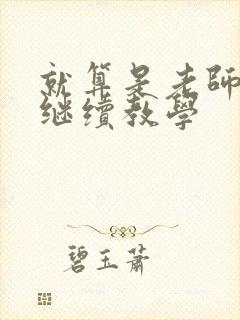 就算是老師
继续教學
碧玉蕭